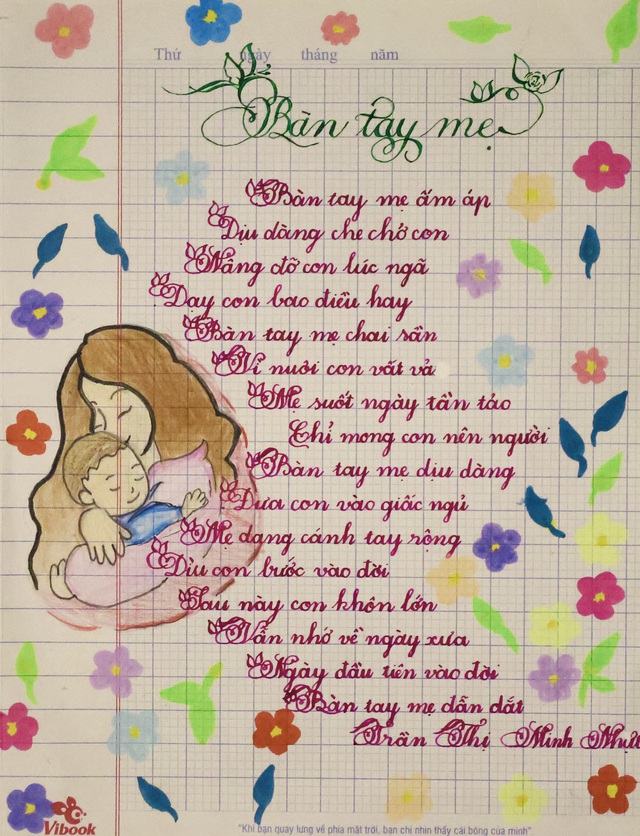 Thứ ngày tháng năm
Bàn tay mẹ
Bàn tay mẹ ấm áp
Dịu dàng che chở con
Nâng đỡ con lúc ngã
Dạy con bao điều hay
Bàn tay mẹ chai sần
Vì nuôi con vất vả
Mẹ suốt ngày tần tảo
Chỉ mong con nên người
Bàn tay mẹ dịu dàng
Đưa con vào giấc ngủ
Mẹ dang cánh tay rộng
Dìu con bước vào đời
Sau này con khôn lớn
Vẫn nhớ về ngày xưa
Ngày đầu tiên vào đời
Bàn tay mẹ dẫn dắt
Trần Thị Minh
Vibook
"Khi bạn quay lưng về phía mặt trời, bạn chỉ nhìn thấy cái bóng của mình"